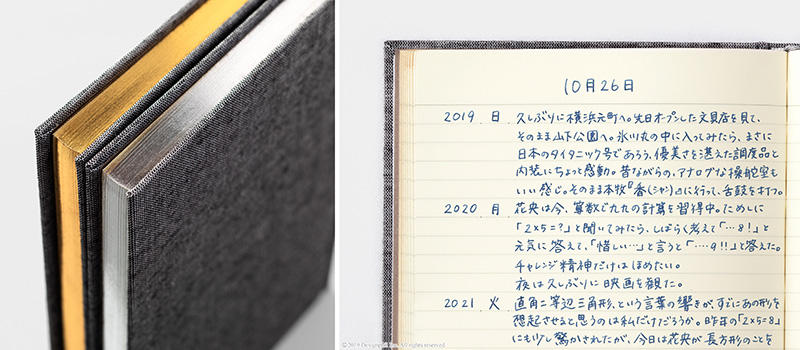 10月26日
2019 日 久しぶりに横浜元町へ。先日オープンした文具店を見て、
そのまま山下公園へ。氷川丸の中に入ってみたら、まさに
日本のタイタニック号であろう、優美さを湛えた調度品と
内装にちょっと感動。昔ながらの、アナログな操舵室も
いい感じ。そのまま本牧『香(シャン)』に行って、舌鼓を打つ。
2020 月 花央は今、算数で九九の計算を習得中。ためしに
「2×5=?」と聞いてみたら、しばらく考えて「…8!」と
元気に答えて、「惜しい…」と言うと「‥‥9!!」と答えた。
チャレンジ精神だけはほめたい。
夜は久しぶりに映画を観た。
2021 火 直角二等辺三角形、という言葉の響きが、すでにあの形を
想起させると思うのは私だけだろうか。昨年の「2×5=8」
にも少し驚かされたが、今日は花央が長方形のことを
© 2019 All rights reserved.